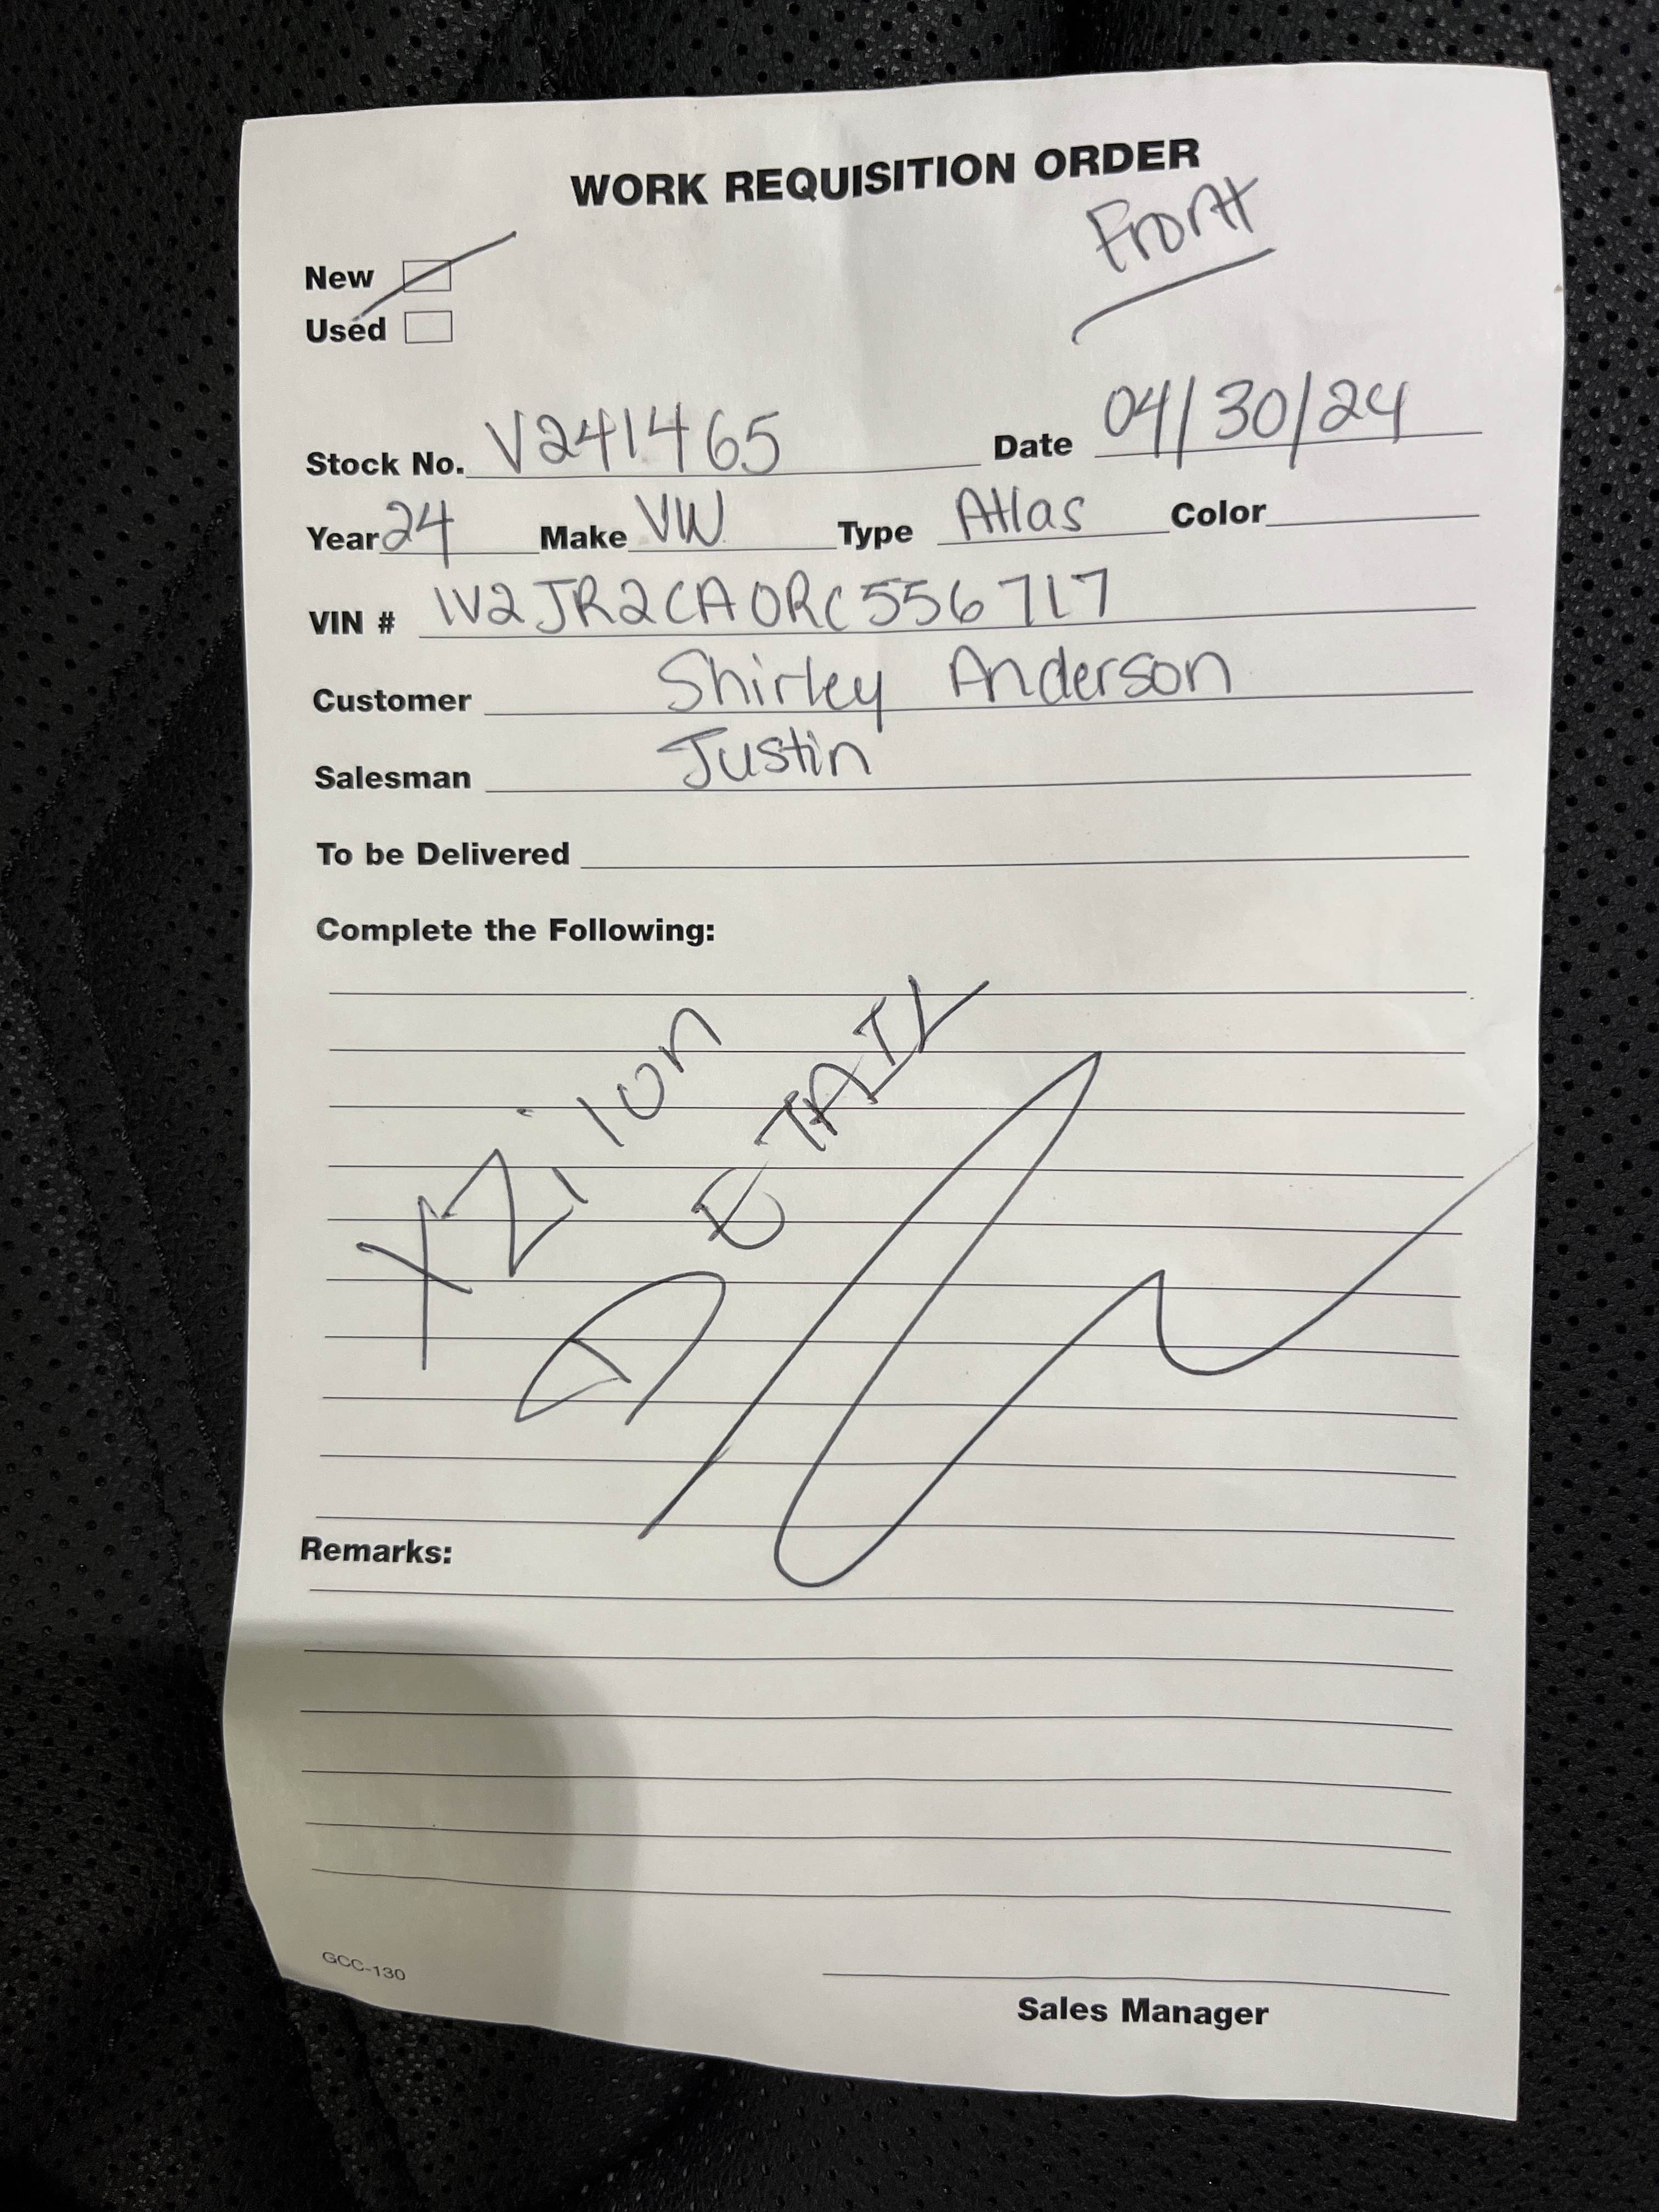 WORK REQUISITION ORDER
Front
New
Used
Stock No. V241465 Date 04/30/24
Year 24 Make VW Type Atlas Color
VIN # 1V2JR2CA0RC556717
Customer Shirley Anderson
Salesman Justin
To be Delivered
Complete the Following:
XZilon
DETAIL
Remarks:
GCC-130
Sales Manager